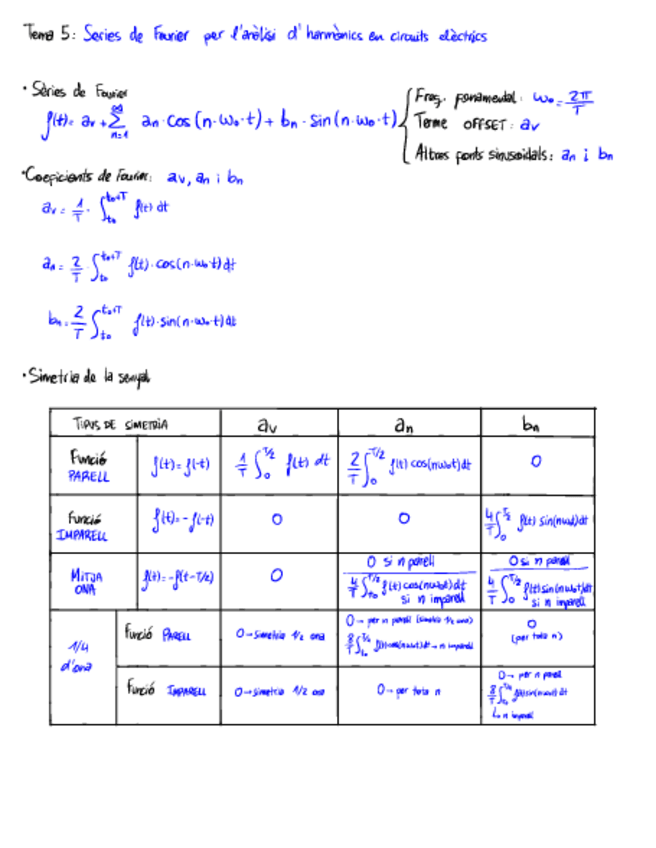 Tema 5: Series de Fourier per l'anàlisi d'harmònics en circuits elèctrics
· Sèries de Fourier
f(t)= av + ∑ n=1 ∞ an·cos(n·ω₀·t) + bn·sin(n·ω₀·t)
Freq. fonamental: ω₀ = 2π/T
Terme OFFSET: av
Altres fonts sinusoidals: an i bn
· Coeficients de Fourier: av, an i bn
av = 1/T · ∫ t₀ t₀+T f(t) dt
an = 2/T · ∫ t₀ t₀+T f(t)·cos(n·ω₀·t)dt
bn = 2/T ∫ t₀ t₀+T f(t)·sin(n·ω₀·t)dt
· Simetria de la senyal
TIPUS DE SIMETRIA av an bn
Funció PARELL f(t)=f(-t) 1/T ∫ 0 T/2 f(t) dt 2/T ∫ 0 T/2 f(t) cos(nω₀t)dt 0
Funció IMPARELL f(t)=-f(-t) 0 0 4/T ∫ 0 T/2 f(t) sin(nω₀t)dt
MITJA ONA f(t)=-f(t-T/2) 0
0 si n parell
4/T ∫ t₀ T/2 f(t)cos(nω₀t)dt si n imparell
0 si n parell
4/T ∫ 0 T/2 f(t)sin(nω₀t)dt si n imparell
1/4 d'ona
Funció PARELL 0→simetria 1/2 ona
0→ per n parell (simetria 1/2 ona)
8/T ∫ t₀ T/4 f(t)cos(nω₀t)dt → n imparell
0
(per tota n)
Funció IMPARELL 0→simetria 1/2 ona 0→ per tota n
0→ per n parell
8/T ∫ t₀ T/4 f(t)sin(nω₀t)dt
↳ n imparell